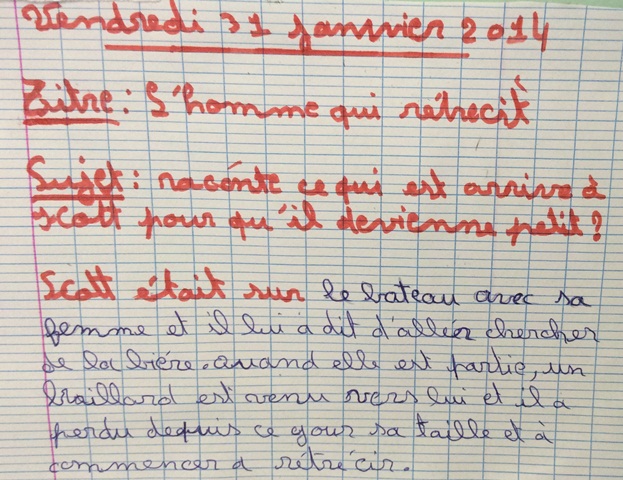 Vendredi 31 janvier 2014
Titre : L'homme qui rétrécit
Sujet : raconte ce qui est arrivé à
scott pour qu'il devienne petit ?
Scott était sur le bateau avec sa
femme et il lui à dit d'allér chercher
de la bière. quand elle est partie, un
braillard est venu vers lui et il a
perdu depuis ce jour sa taille et à
commencer a rétrécir.